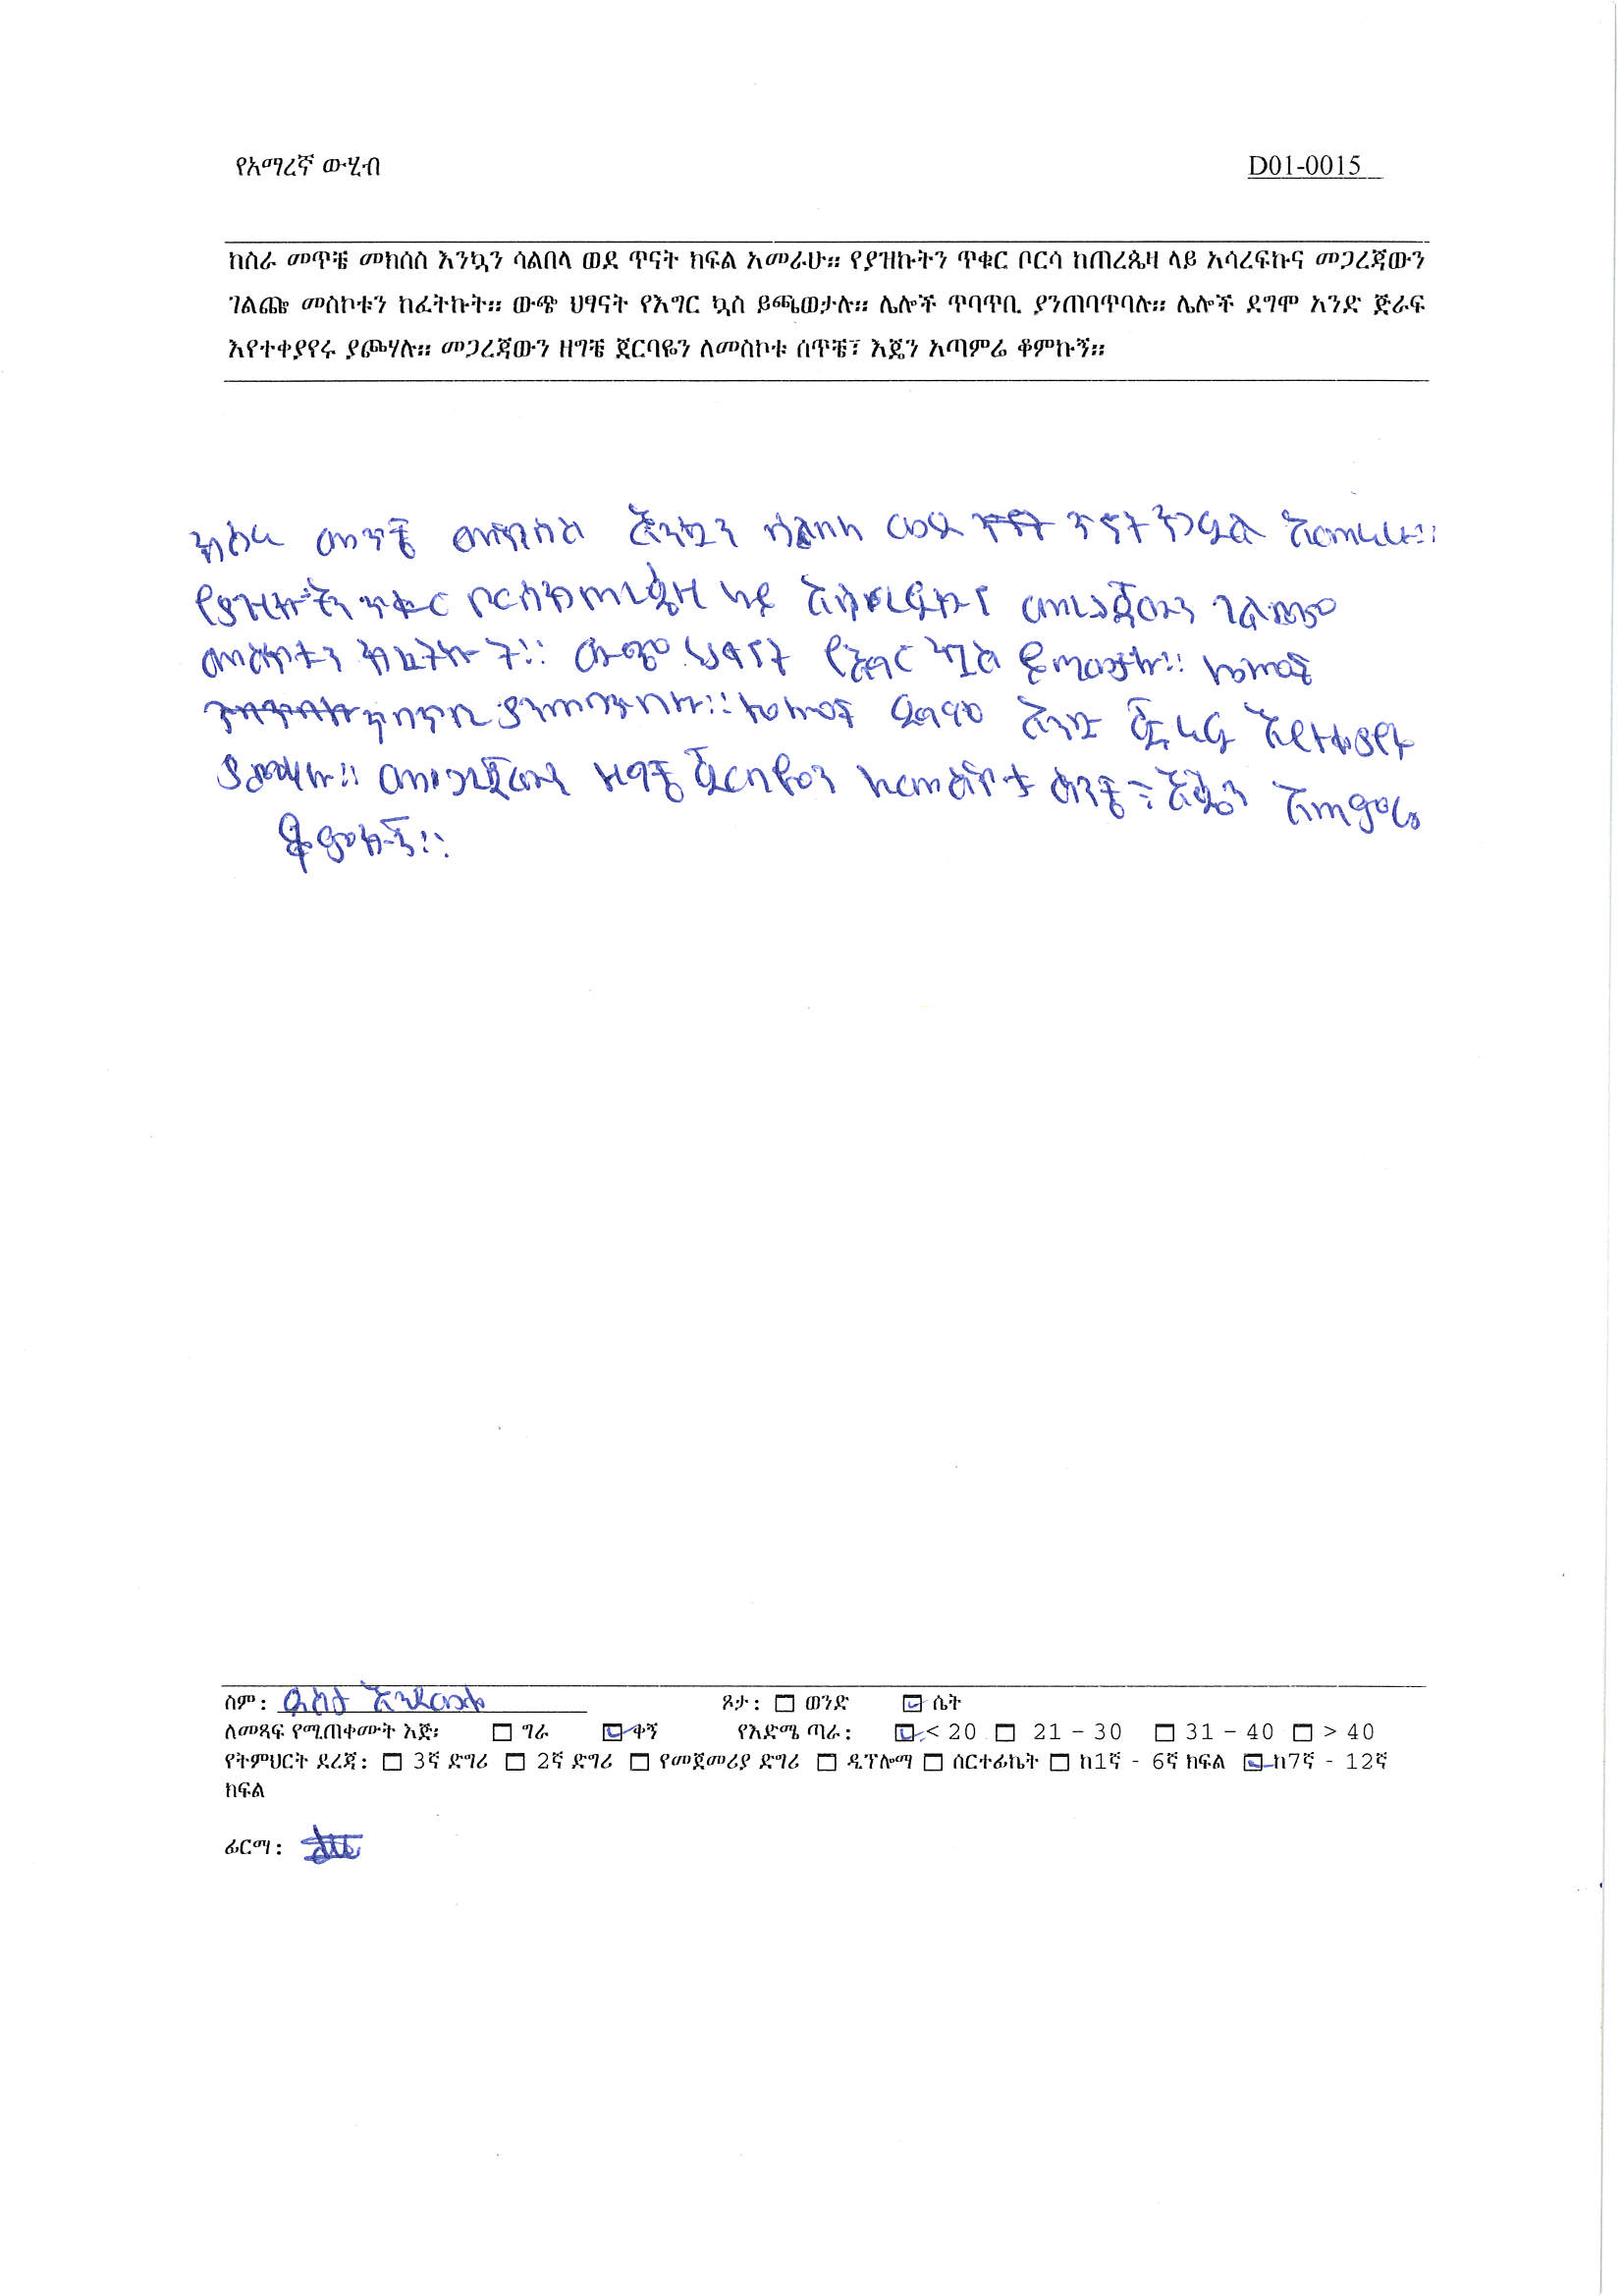 የአማረኛ ውሂብ D01-0015
ከስራ መጥቼ መክሰስ እንኳን ሳልበላ ወደ ጥናት ክፍል አመራሁ። የያዝኩትን ጥቁር ቦርሳ ከጠረጴዛ ላይ አሳረፍኩና መጋረጃውን
ገልጬ መስኮቱን ከፈትኩት። ውጭ ህፃናት የእግር ኳስ ይጫወታሉ። ሌሎች ጥባጥቢ ያንጠባጥባሉ። ሌሎች ደግሞ አንድ ጅራፍ
እየተቀያየሩ ያጮሃሉ። መጋረጃውን ዘግቼ ጀርባዬን ለመስኮቱ ሰጥቼ፣ እጄን አጣምሬ ቆምኩኝ።
ከስራ መጥቼ መክሰስ እንኳን ሳልበላ ወደ ጥናት ክፍል አመራሁ።
የያዝኩትን ጥቁር ቦርሳ ከጠረጴዛ ላይ አሳረፍኩና መጋረጃውን ገልጬ
መስኮቱን ከፈትኩት። ውጭ ህፃናት የእግር ኳስ ይጫወታሉ። ሌሎች
ጥባጥቢ ያንጠባጥባሉ። ሌሎች ደግሞ አንድ ጅራፍ
ያጮሃሉ። መጋረጃውን ዘግቼ ጀርባዬን ለመስኮቱ ሰጥቼ፣ እጄን አጣምሬ
ቆምኩኝ።
ስም: ጾታ: ወንድ ሴት
ለመጻፍ የሚጠቀሙት እጅ፡ ግራ ቀኝ የእድሜ ጣራ: < 20 21 – 30 31 – 40 > 40
የትምህርት ደረጃ: 3ኛ ድግሪ 2ኛ ድግሪ የመጀመሪያ ድግሪ ዲፕሎማ ሰርተፊኬት ከ1ኛ - 6ኛ ክፍል ከ7ኛ - 12ኛ
ክፍል
ፊርማ: